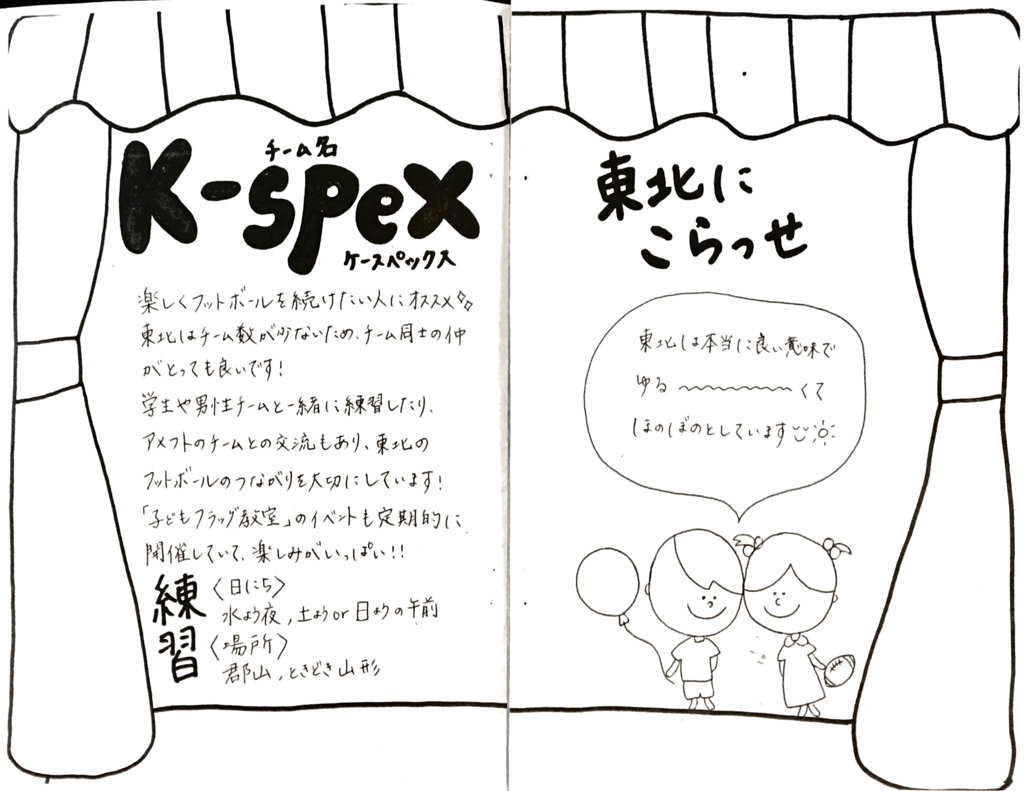 チーム名
K-spex
ケースペックス
楽しくフットボールを続けたい人にオススメ
東北はチーム数が少ないため、チーム同士の仲
がとっても良いです!
学生や男性チームと一緒に練習したり、
アメフトのチームとの交流もあり、東北の
フットボールのつながりを大切にしています!
「子どもフラッグ教室」のイベントも定期的に
開催していて、楽しみがいっぱい!!
練習
〈日にち〉
水よう夜, 土ようor日ようの午前
〈場所〉
郡山, ときどき山形
東北に
こらっせ
東北は本当に良い意味で
ゆる〜〜〜〜〜〜くて
ほのぼのとしています